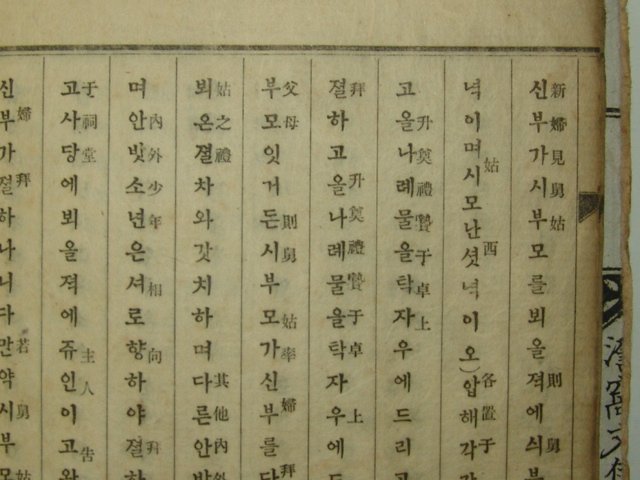 新婦見舅姑 則舅
신부가시부모를뵈올젹에싀부
姑 西 各置于
녁이며시모난셧녁이오)압해각
升奠禮贄于卓上
고올나례물을탁자우에드리고
拜 升奠禮贄于卓上
졀하고올나례물을탁자우에
父母 則舅姑率婦拜
부모잇거든시부모가신부를다
姑之禮 其他內外
뵈온졀차와갓치하며다른안밧
內外少年相向拜
며안밧소년은셔로향하야졀하
于祠堂 主人告
고사당에뵈올젹에쥬인이고왈
婦拜 若舅姑
신부가졀하나니다만약시부모